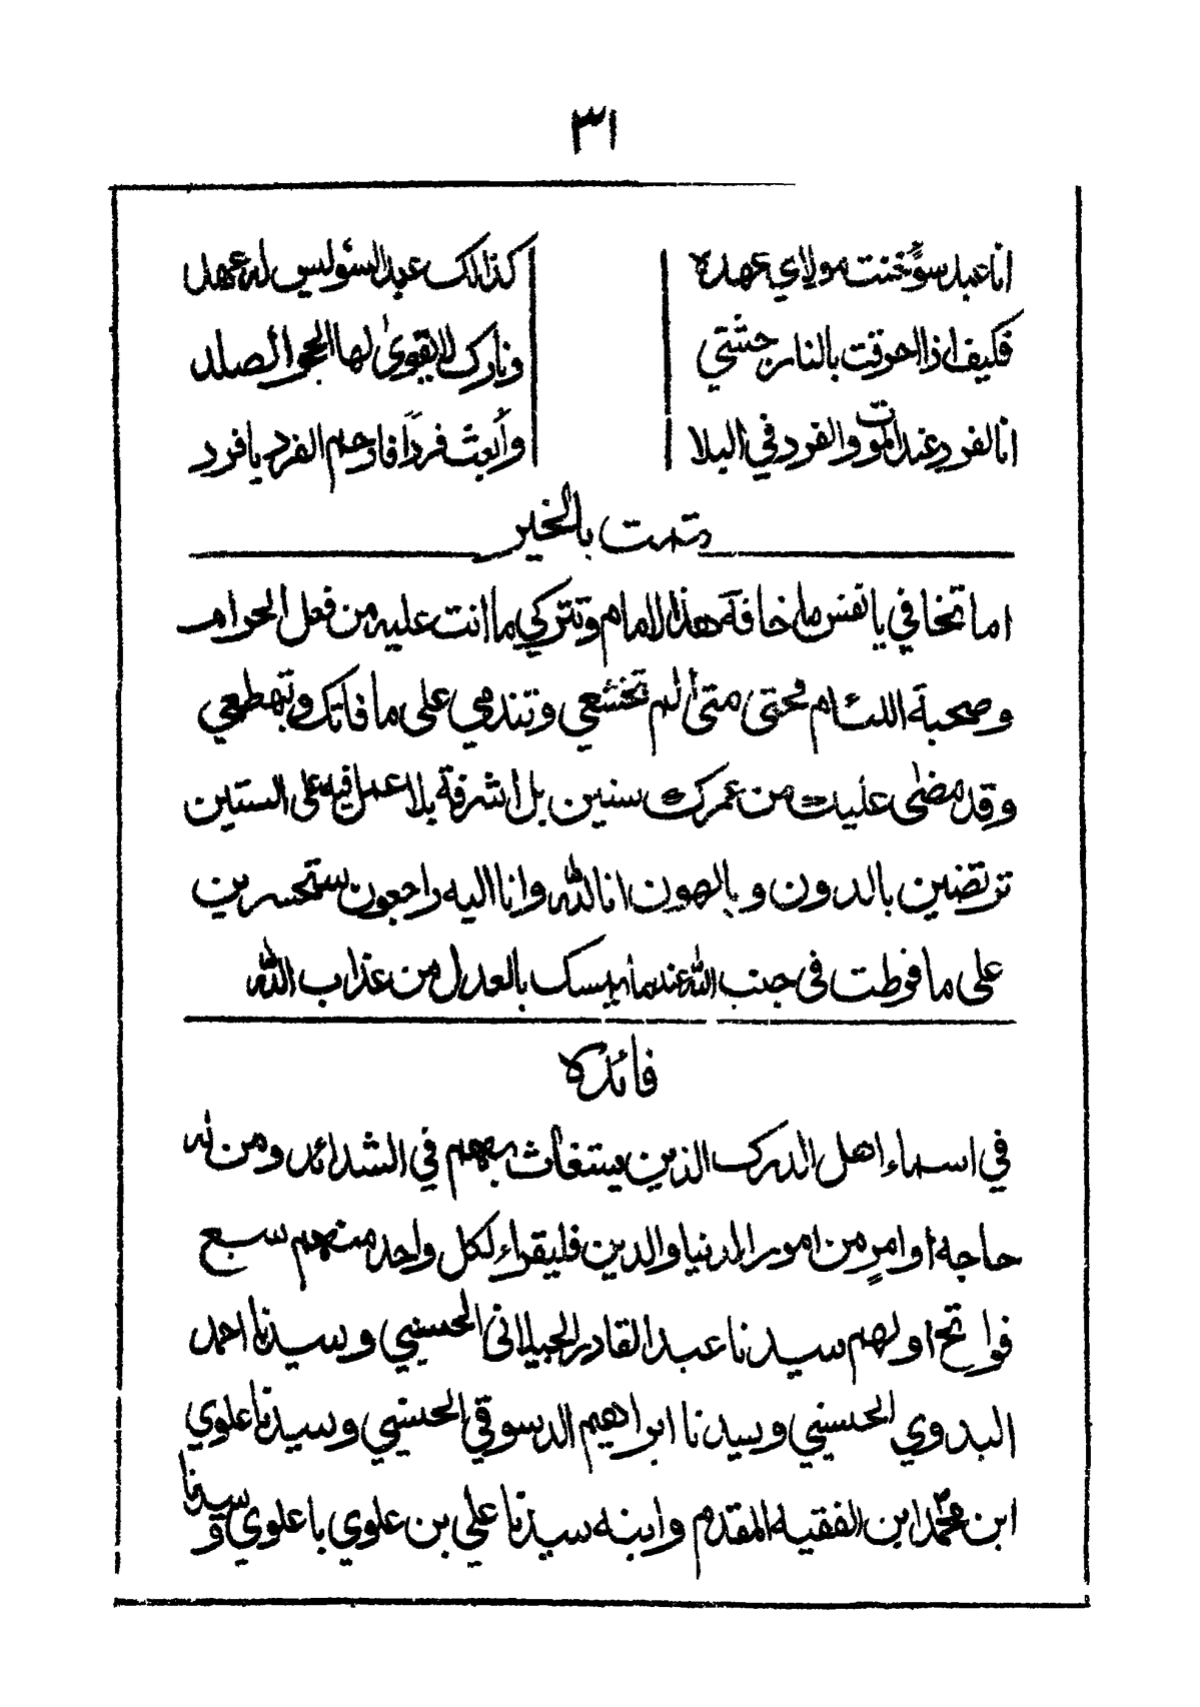 ٣١
انا عبد سوٍّ خنت مولاي عهده كذالك عبد السوّ ليس له عهد
فكيف اذا احرقت بالنار جثتي ونارك لا يقوىٰ لها الحجر الصلد
انا الفرد عند الموت والفرد في البلا وأبعث فرداً فارحم الفرد يا فرد
تمت بالخير
اما تخافي يا نفس ما خافه هذا الامام وتتركي ما انت عليه من فعل الحرام
وصحبة اللئام فحتى متى ألم تخشعي وتندمي على ما فاتك وتهطعي
وقد مضى عليك من عمرك سنين بل أشرفة بلا عمل فيه على الستين
ترتضين بالدون وبالهون انا لله وانا اليه راجعون ستحسرين
على ما فرطت في جنب الله عندما يمسك بالعدل من عذاب الله
فائده
في اسماء اهل الدرك الذين يستغاث بهم في الشدائد ومن له
حاجه أو امرٍ من امور الدنيا والدين فليقراء لكل واحد منهم سبع
فواتح أولهم سيدنا عبد القادر الجيلاني الحسيني وسيدنا احمد
البدوي الحسيني وسيدنا ابراهيم الدسوقي الحسيني وسيدنا علوي
ابن محمّد ابن الفقيه المقدم وابنه سيدنا علي بن علوي باعلوي وسيدنا